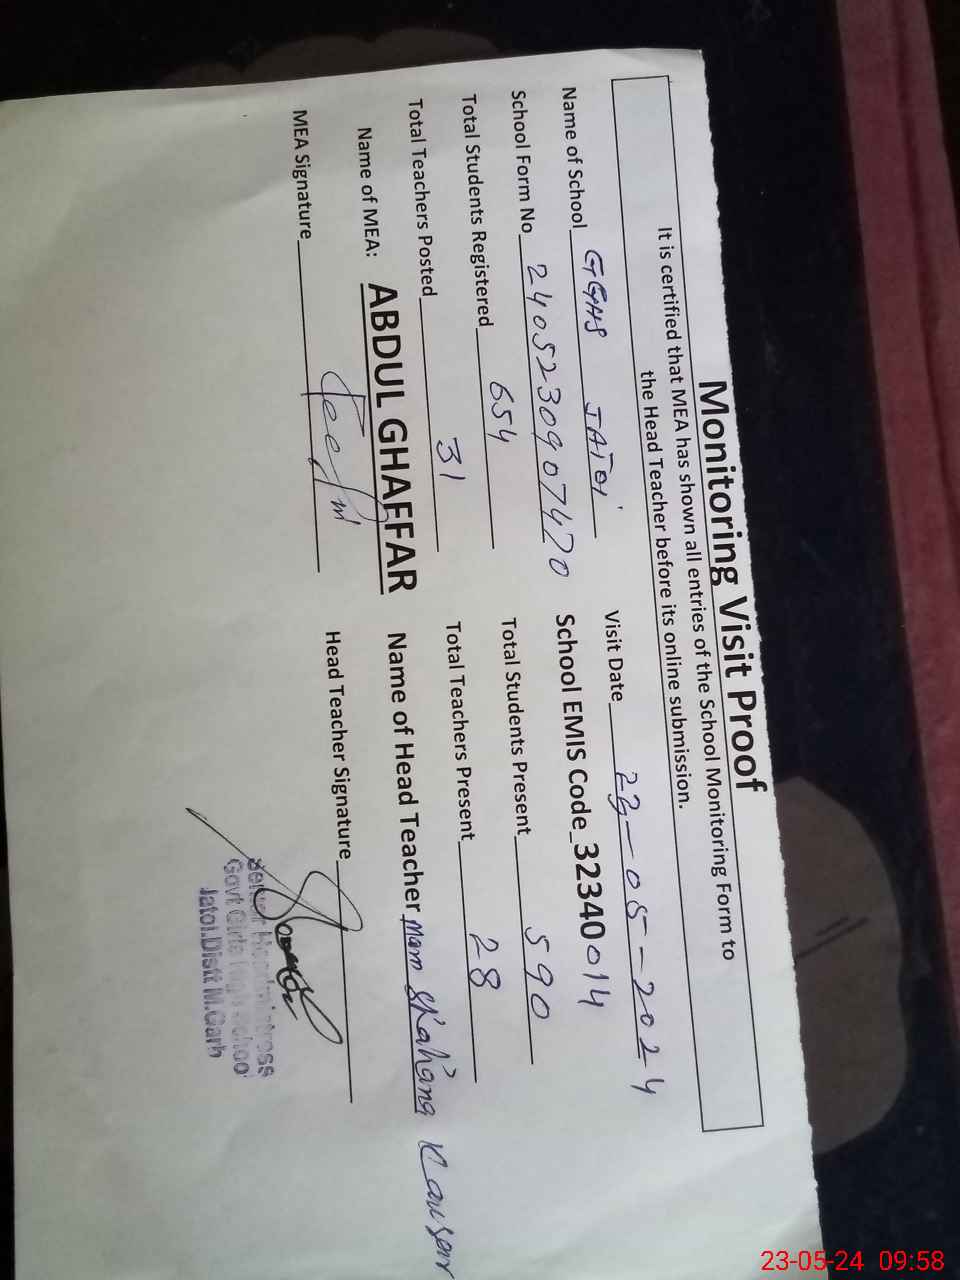 Monitoring Visit Proof
It is certified that MEA has shown all entries of the School Monitoring Form to
the Head Teacher before its online submission.
Name of School GGHS JATOI Visit Date 23-05-2024
School Form No 2405230907420 School EMIS Code 32340014
Total Students Registered 654 Total Students Present 590
Total Teachers Posted 31 Total Teachers Present 28
Name of MEA: ABDUL GHAFFAR Name of Head Teacher Mam Shahana Kausar
MEA Signature Head Teacher Signature
Senior Headmistress
Govt Girls High School
Jatoi.Distt M.Garh
23-05-24 09:58